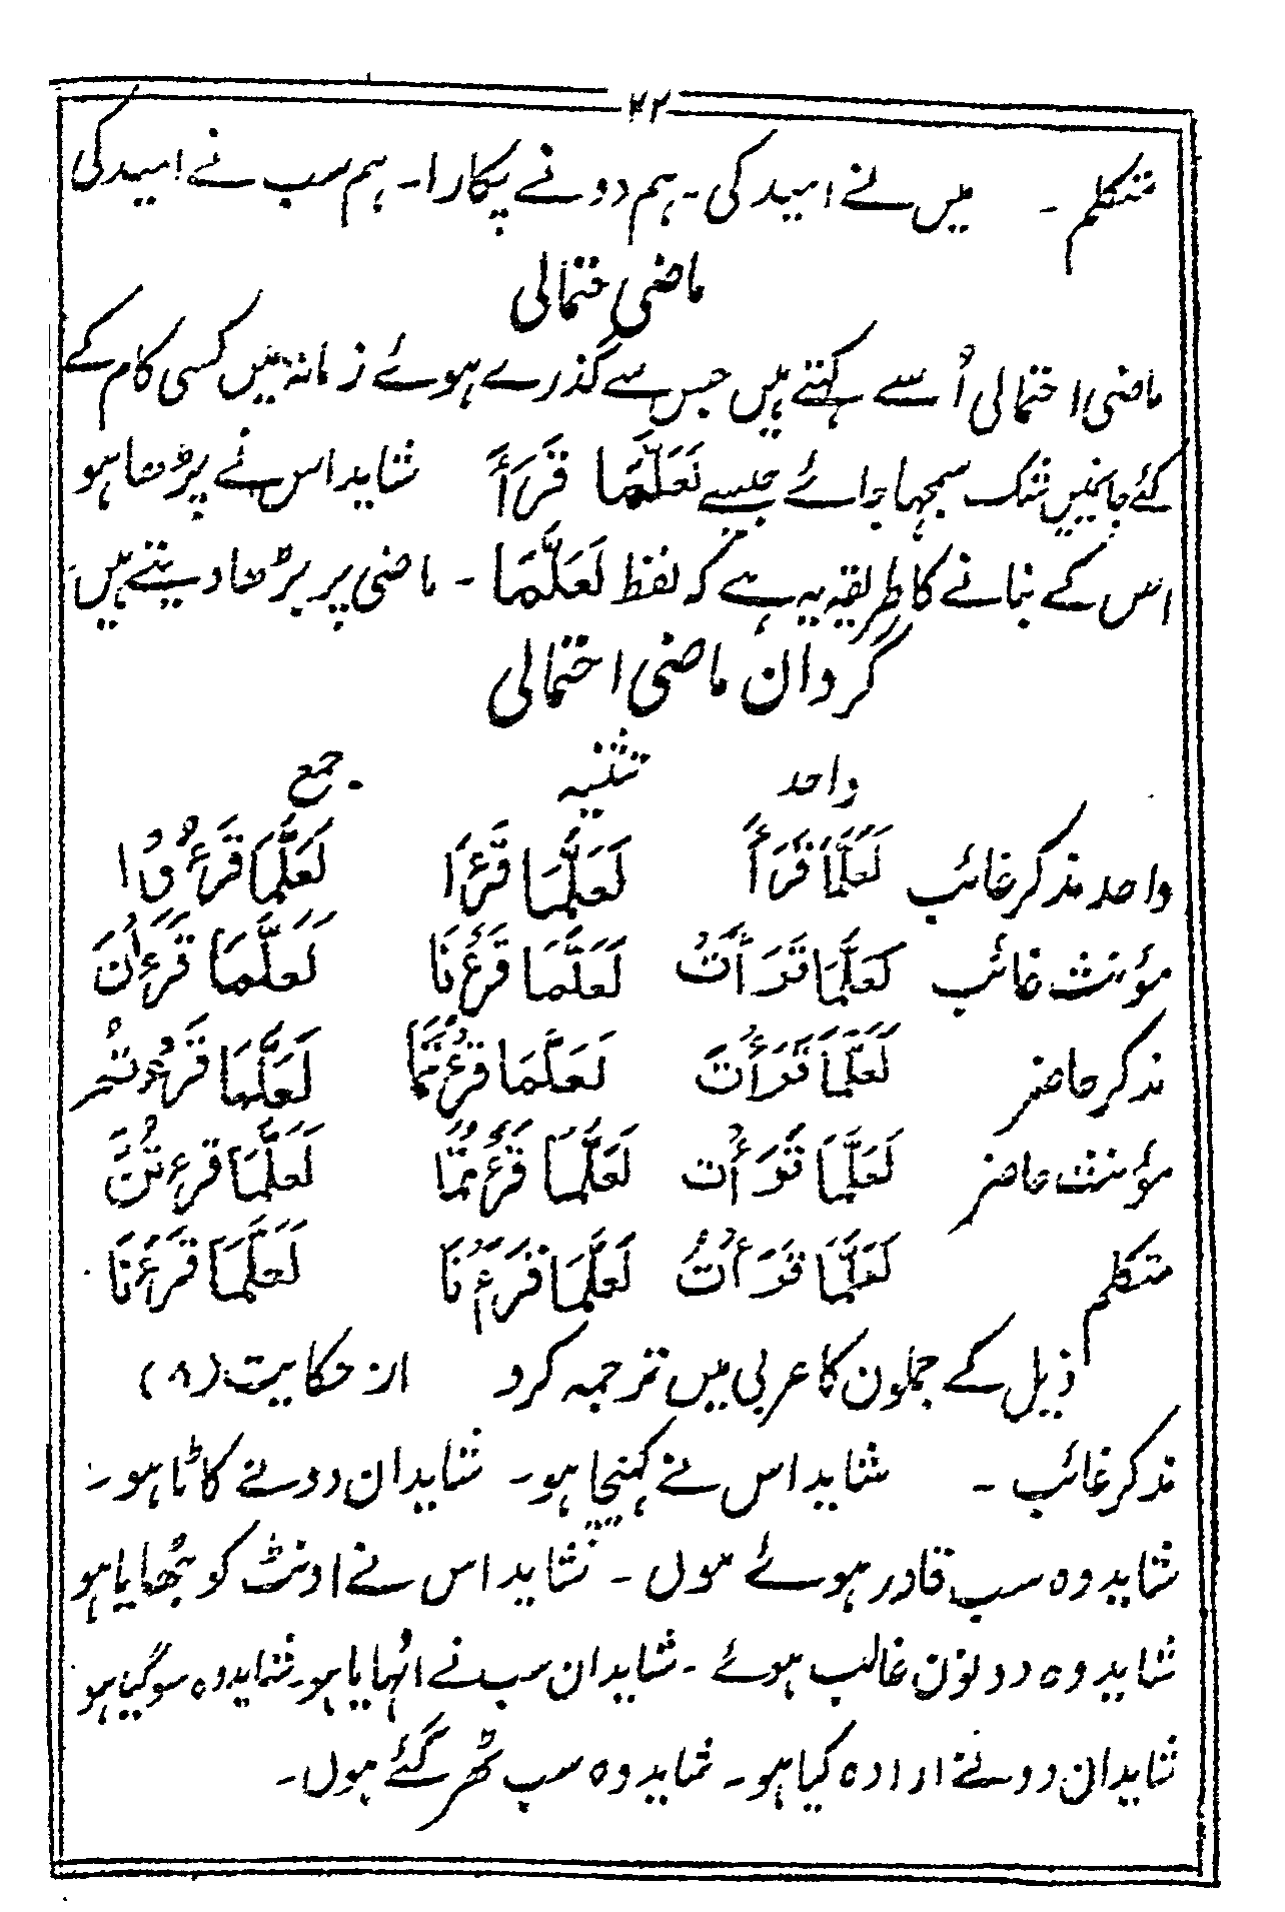 ۴۲
متکلم ۔ میں نے امید کی ۔ ہم دو نے پکارا ۔ ہم سب نے امید کی
ماضی حتمالی
ماضی احتمالی اُسے کہتے ہیں جس سے گذرے ہوئے زمانہ میں کسی کام کے
کئے جانیمیں شک سمجہا جائے جیسے لَعَلَّمَا قَرَأَ شاید اس نے پڑھا ہو
اس کے بنانے کا طریقہ یہ ہے کہ لفظ لَعَلَّمَا ۔ ماضی پر بڑھا دیتے ہیں
گردان ماضی احتمالی
واحد تثنیہ جمع
واحد مذکر غائب لَعَلَّمَا قَرَأَ لَعَلَّمَا قَرَءَا لَعَلَّمَا قَرَءُوْا
مؤنث غائب لَعَلَّمَا قَرَأَتْ لَعَلَّمَا قَرَءَتَا لَعَلَّمَا قَرَءْنَ
مذکر حاضر لَعَلَّمَا قَرَأْتَ لَعَلَّمَا قَرَءْتُمَا لَعَلَّمَا قَرَءْتُمْ
مؤنث حاضر لَعَلَّمَا قَرَأْتِ لَعَلَّمَا قَرَءْتُمَا لَعَلَّمَا قَرَءْتُنَّ
متکلم لَعَلَّمَا قَرَأْتُ لَعَلَّمَا قَرَءْنَا لَعَلَّمَا قَرَءْنَا
ذیل کے جملون کا عربی میں ترجمہ کرو از حکایت (۸)
مذکر غائب ۔ شاید اس نے کہنچا ہو ۔ شاید ان دو نے کاٹا ہو ۔
شاید وہ سب قادر ہوئے ہوں ۔ شاید اس نے اونٹ کو بٹھایا ہو
شاید وہ دونون غالب ہوئے ۔ شاید ان سب نے اٹہایا ہو ۔ شاید وہ سو گیا ہو
شاید ان دو نے ارادہ کیا ہو ۔ شاید وہ سب ٹھر گئے ہوں ۔